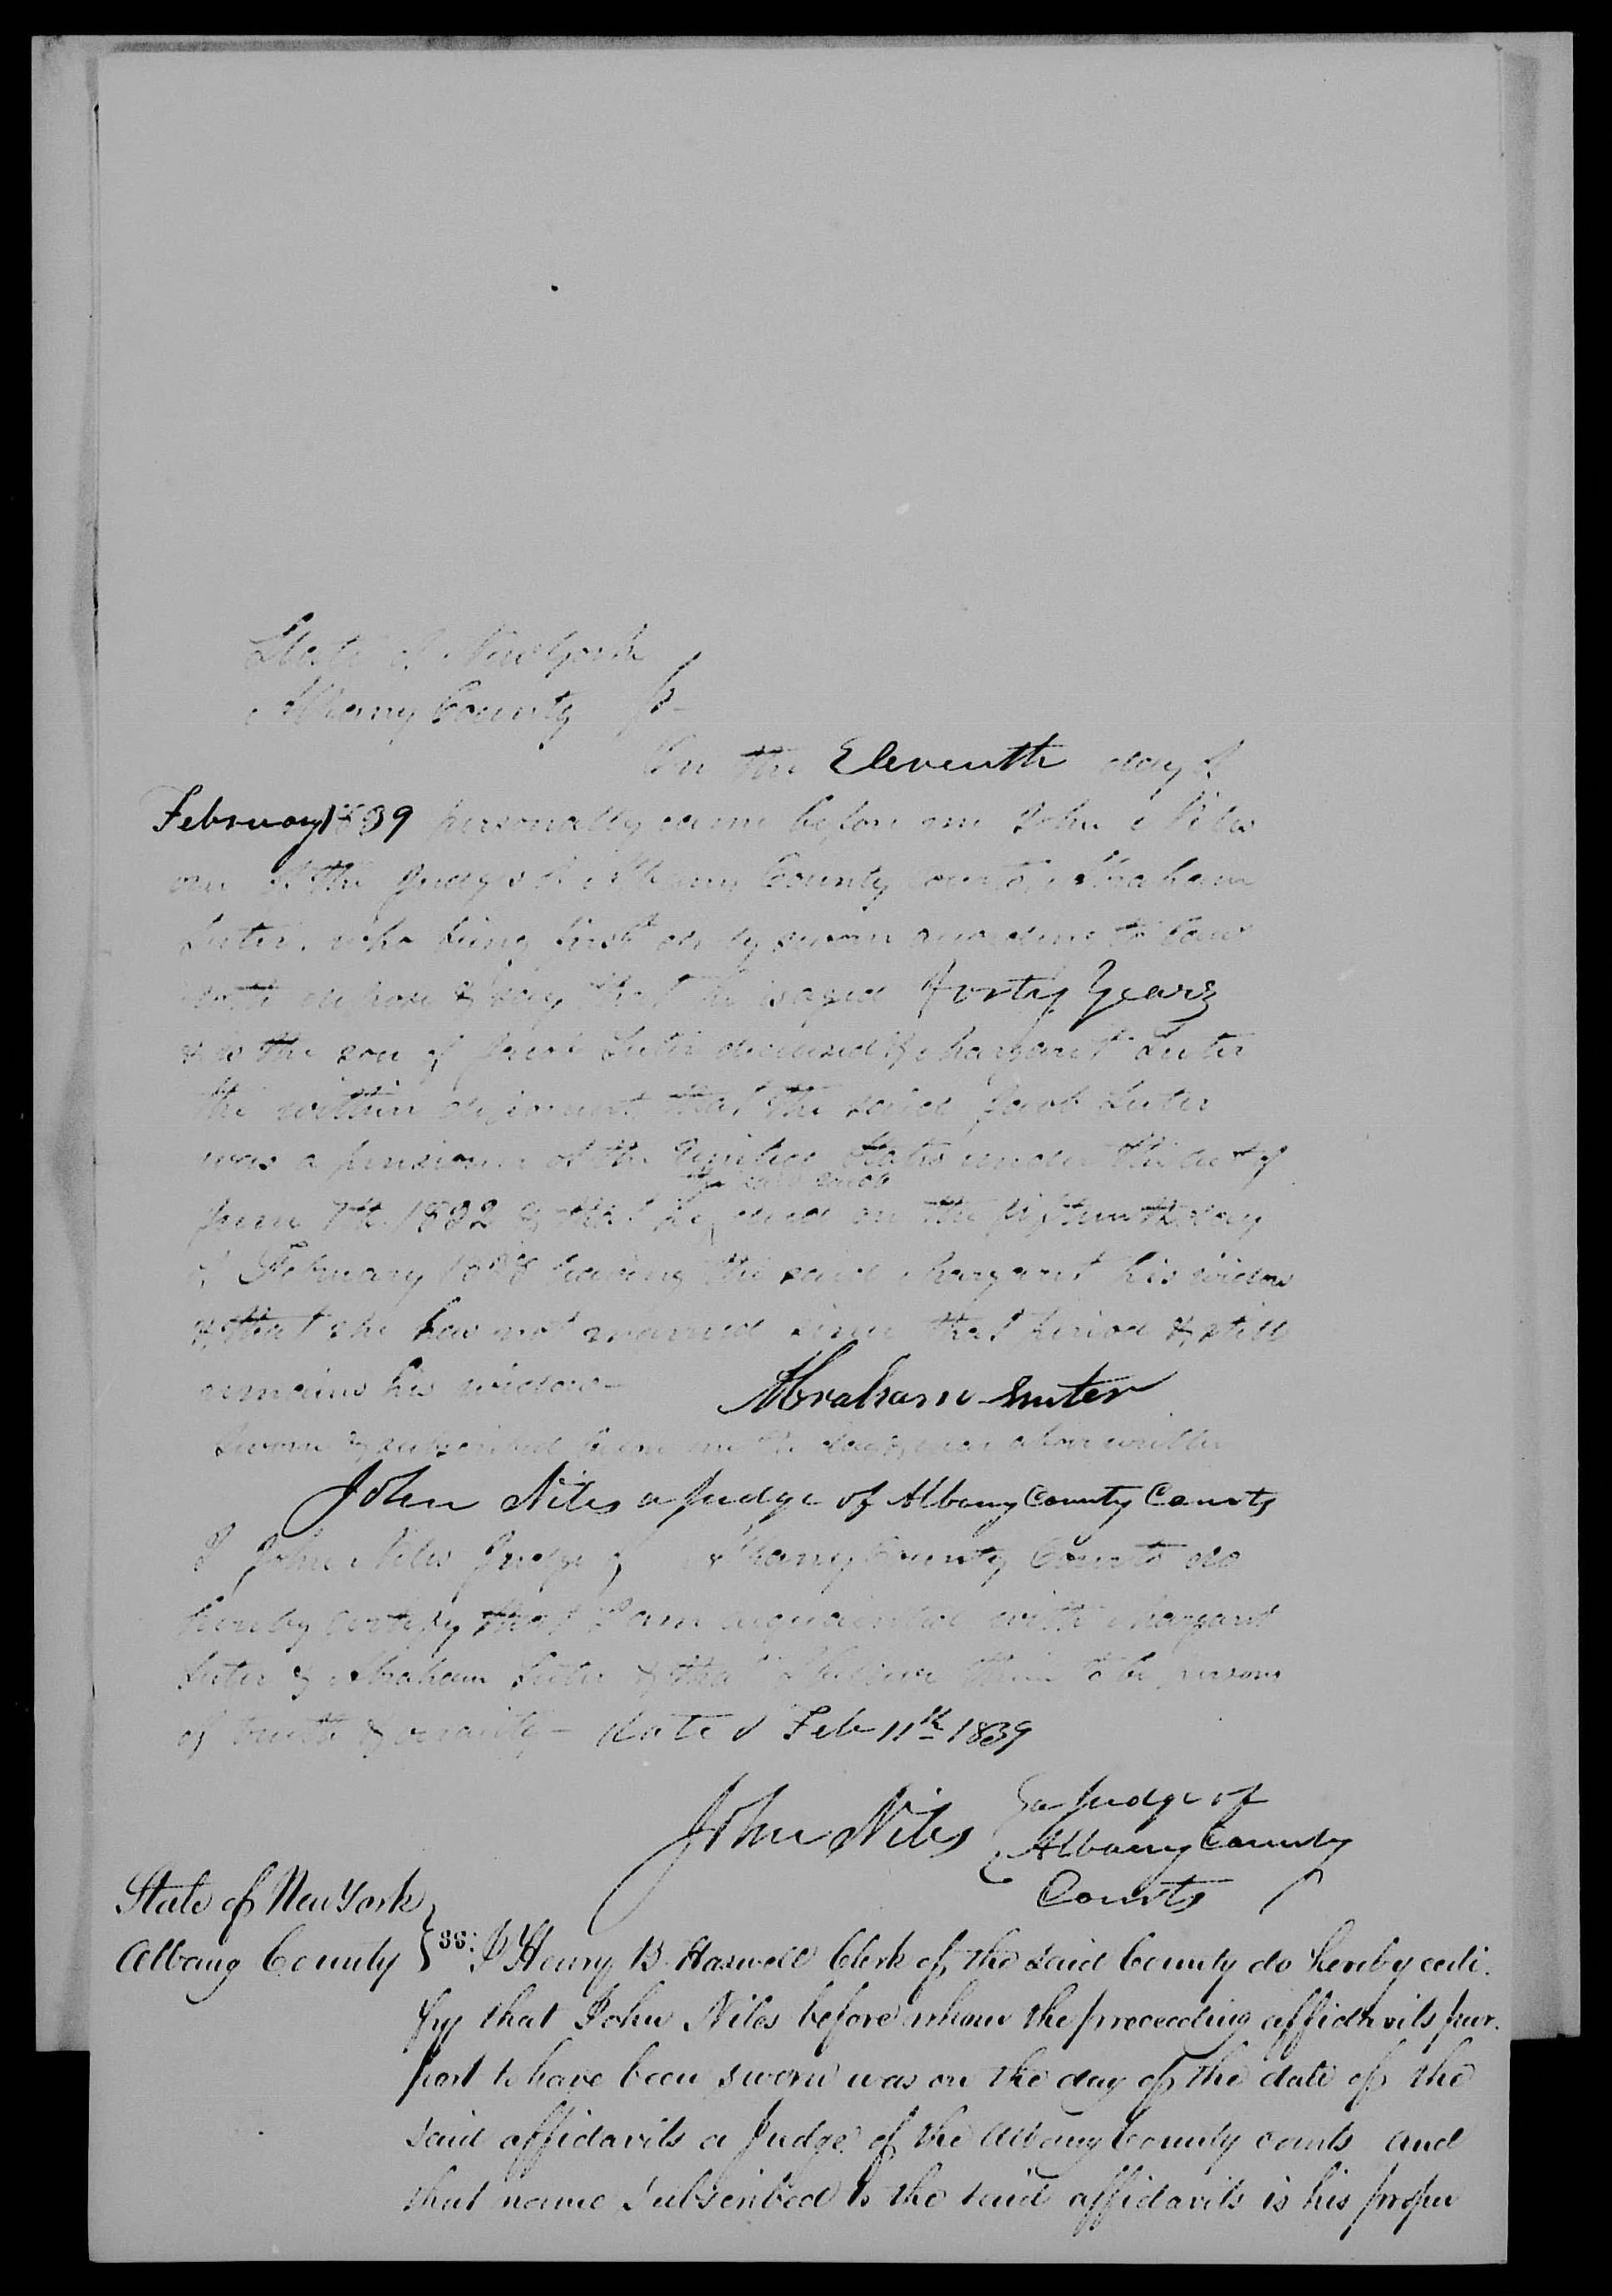 State of New York
Albany County ss
On the Eleventh day of
February 1839 personally came before me John Niles
one of the Judges of Albany County Courts, Abraham
Suter, who being first duly sworn according to law
doth depose & say that he is aged forty Years
& is the son of Jacob Suter deceased & Margaret Suter
the within deponent, that the said Jacob Suter
was a pensioner of the United States under the act of
the said Jacob
June 7th 1832 & that he died on the fifteenth day
of February 1838 leaving the said Margaret his widow
& that she has not married since that period & still
remains his widow -
Abraham Suter
Sworn & subscribed before me the day & year above written
John Niles a Judge of Albany County Courts
I John Niles Judge of Albany County Courts do
hereby certify that I am acquainted with Margaret
Suter & Abraham Suter & that I believe them to be persons
of truth & veracity - dated Feb 11th 1839
John Niles a Judge of
Albany County
Courts
State of New York
Albany County ss: I Henry B. Haswell Clerk of the said County do hereby certi-
fy that John Niles before whom the preceeding affidavits pur-
port to have been sworn was on the day of the date of the
said affidavits a Judge of the Albany County courts and
that name subscribed to the said affidavits is his proper